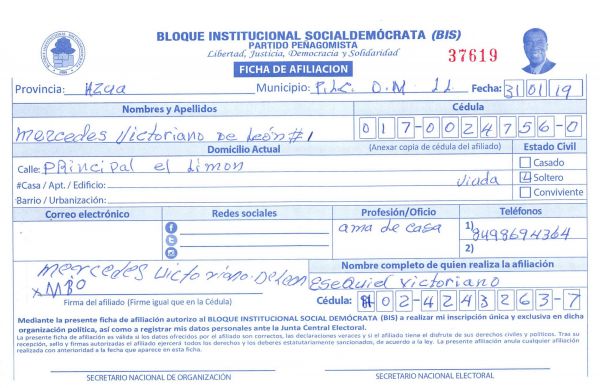 BLOQUE INSTITUCIONAL SOCIALDEMÓCRATA (BIS)
PARTIDO PEÑAGOMISTA
Libertad, Justicia, Democracia y Solidaridad
37619
FICHA DE AFILIACION
Provincia: Azua Municipio: P.L.C. D.M LL Fecha: 31 01 19
Nombres y Apellidos Cédula
Mercedes Victoriano De León #1 017-0024756-0
Domicilio Actual (Anexar copia de cédula del afiliado) Estado Civil
Calle: Principal el Limon Casado
#Casa / Apt. / Edificio: Viuda Soltero
Barrio / Urbanización: Conviviente
Correo electrónico Redes sociales Profesión/Oficio Teléfonos
ama de casa 1) 8498694364
2)
Mercedes Victoriano De León Nombre completo de quien realiza la afiliación
Esequiel Victoriano
Firma del afiliado (Firme igual que en la Cédula) Cédula: 02-4243263-7
Mediante la presente ficha de afiliación autorizo al BLOQUE INSTITUCIONAL SOCIAL DEMÓCRATA (BIS) a realizar mi inscripción única y exclusiva en dicha
organización política, así como a registrar mis datos personales ante la Junta Central Electoral.
La presente ficha de afiliación es válida si los datos ofrecidos por el afiliado son correctos, las declaraciones veraces y si el afiliado tiene el disfrute de sus derechos civiles y políticos. Tras su
recepción, sello y firmas autorizadas el afiliado ejercerá todos los derechos y los deberes estatutariamente sancionados, de acuerdo a la ley. La presente afiliación anula cualquier afiliación
realizada con anterioridad a la fecha que aparece en esta ficha.
SECRETARIO NACIONAL DE ORGANIZACIÓN SECRETARIO NACIONAL ELECTORAL